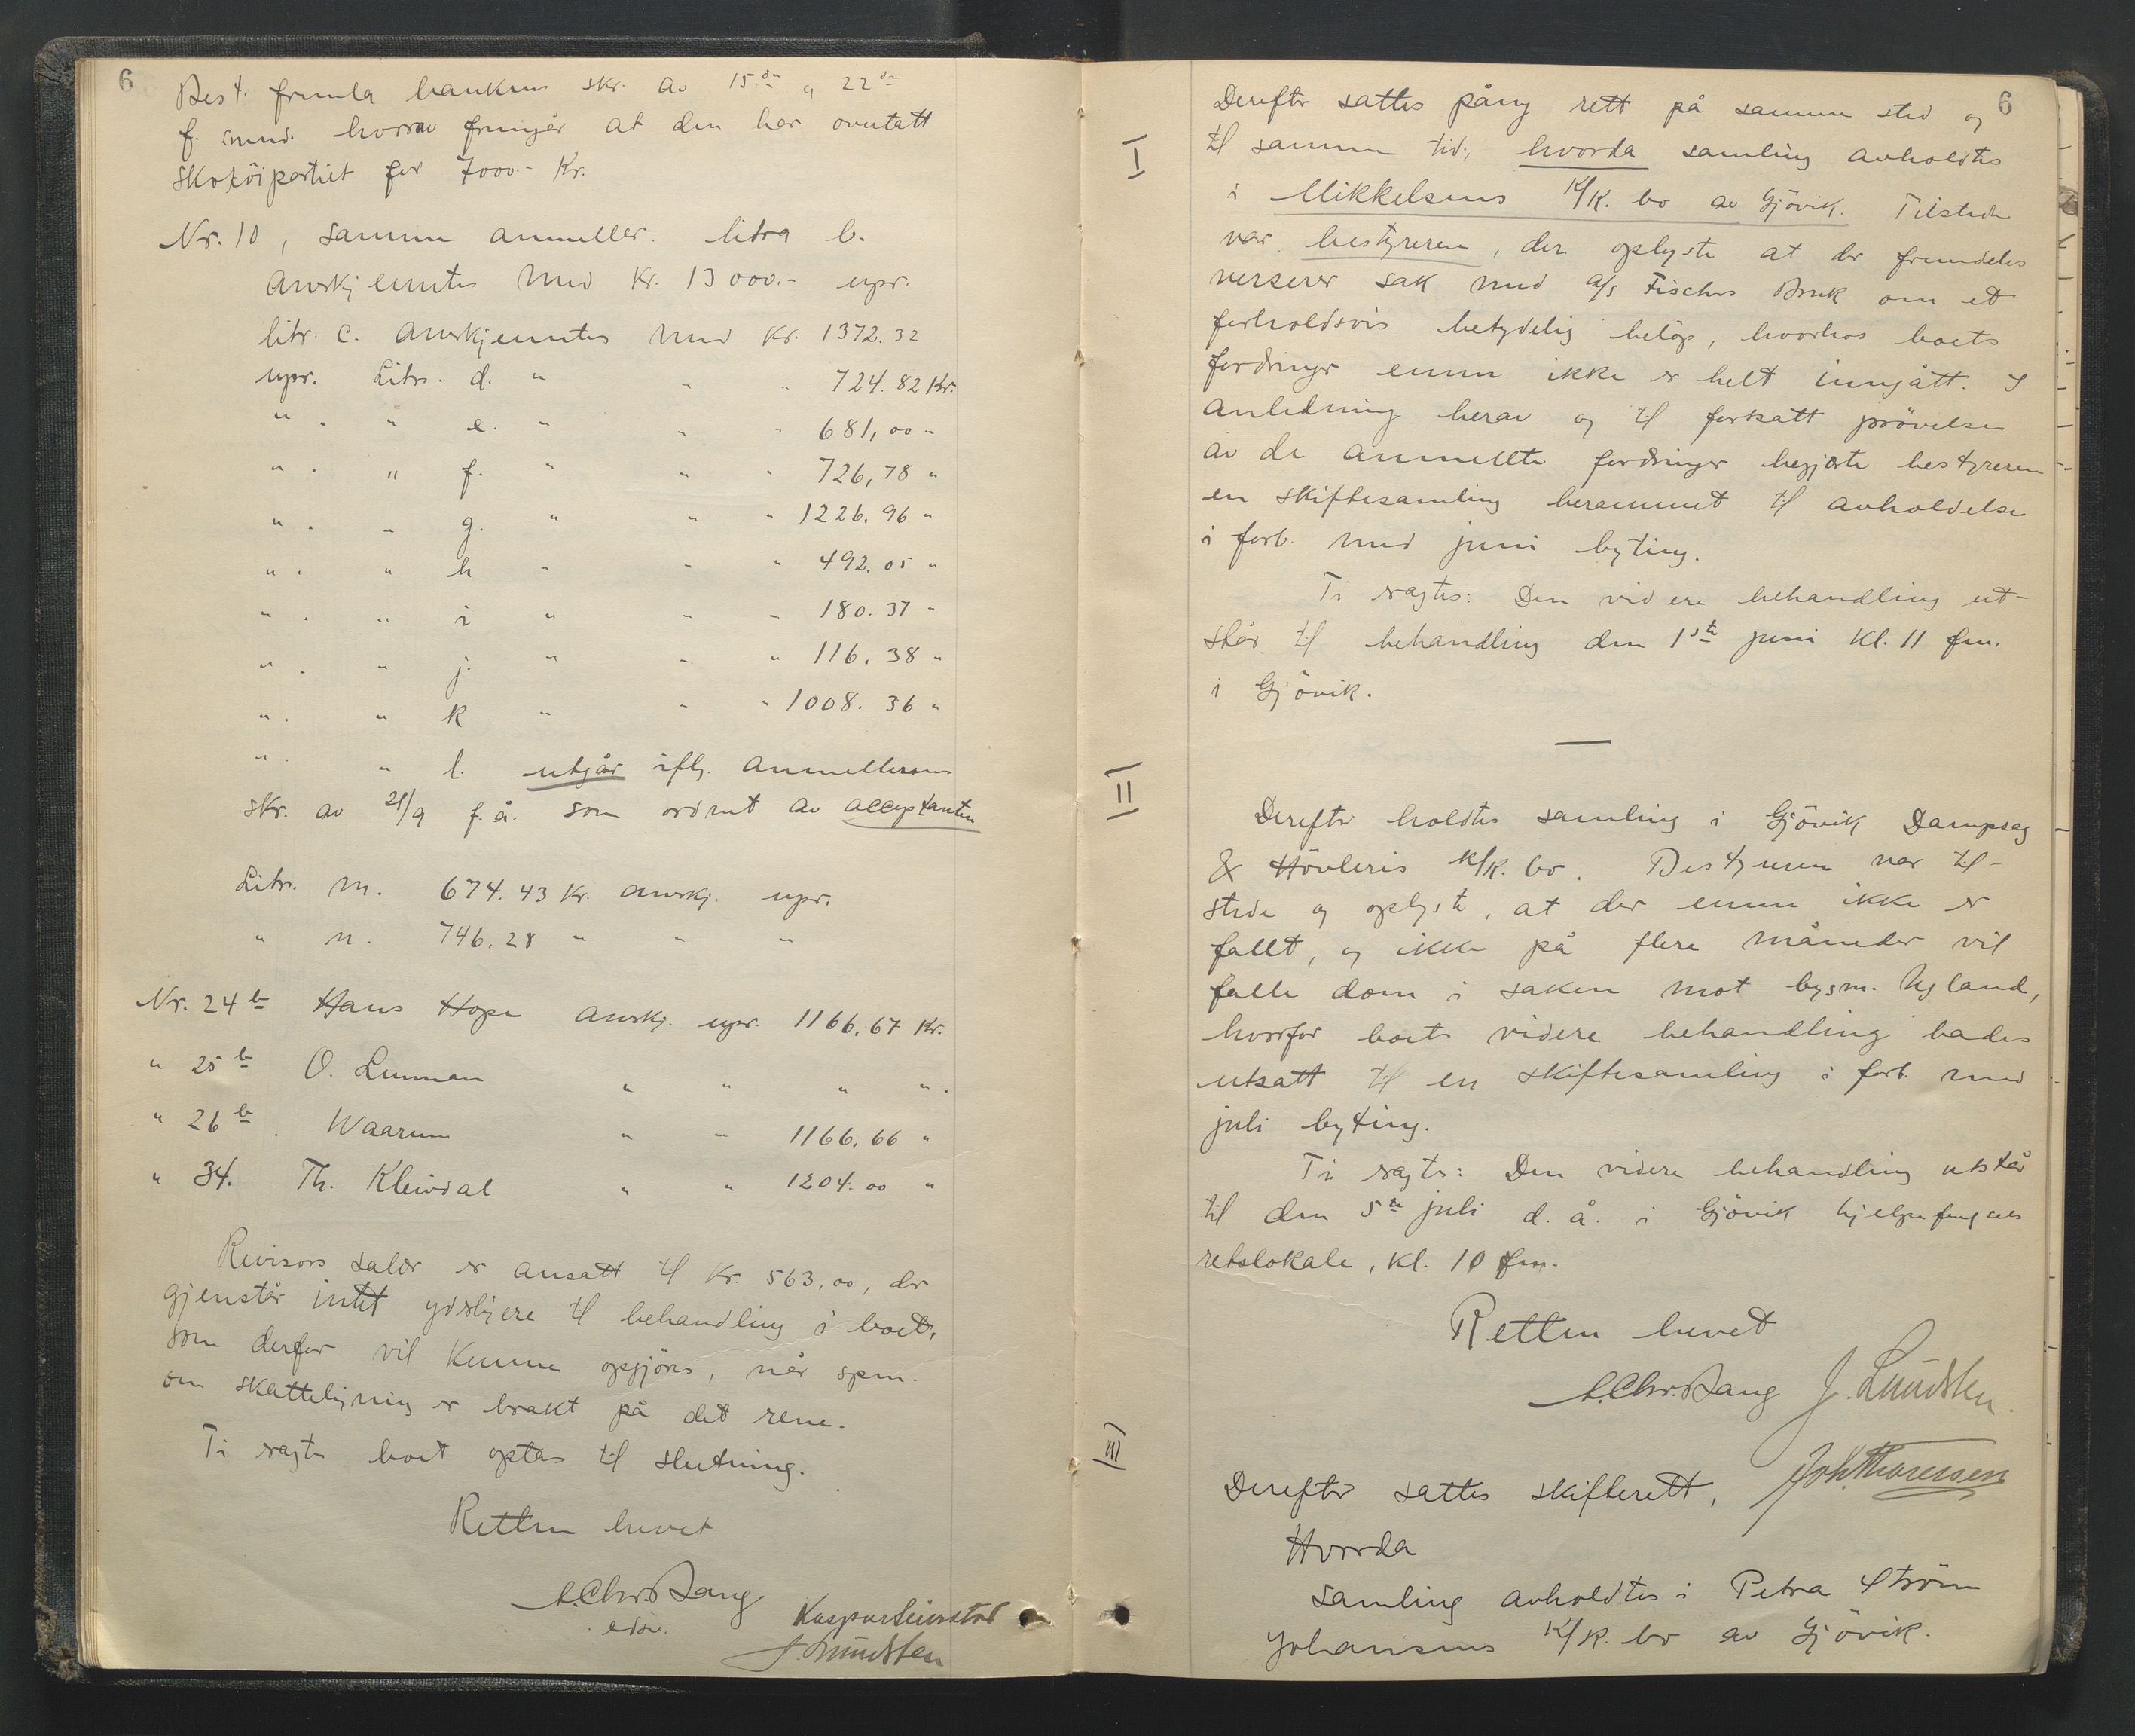 6
Best. fremla bankens skr. av 15de og 22de
f. mnd. hvorav fremgår at den har overtatt
skotöipartiet for 7000.- Kr.
Nr. 10, samme anmelder. litra b.
anerkjentes med Kr. 13000.- upr.
litr. c. anerkjentes med Kr. 1372.32
upr. Litr. d. " " " 724.82 Kr.
" . " e. " " " 681,00 "
" . " f. " " " 726,78 "
" . " g. " " " 1226.96 "
" . " h " " " 492.05 "
" . " i " " " 180.37 "
" . " j. " " " 116.38 "
" . " k " " " 1008.36 "
" . " l. utgår iflg. anmelderens
skr. av 21/9 f.å. som ordnet av acceptanten
Litr. m. 674.43 Kr. anerkj. upr.
" n. 746.28 " " "
Nr. 24 b Hans Hope anerkj. upr. 1166.67 Kr.
" 25 b O. Lunman " " " ".
" 26 b. Waarum " " 1166.66 "
" 34. Th. Kleivdal " " 1204.00 "
Revisors salær er ansatt til Kr. 563,00, der
gjenstår intet yderligere til behandling i boet,
som derfor vil kunne opgjöres, når spm.
om skatteligning er brakt på det rene.
Ti sagtes boet optas til slutning.
Retten hevet
A.Chr.Bang
edsv.
Kaspar Seierstad
J. Lundsten
6
Derefter sattes påny rett på samme sted og
I
til samme tid, hvorda samling avholdtes
i Mikkelsens K/K. bo av Gjövik. Tilstede
var bestyreren, der oplyste at der fremdeles
verserer sak med A/S Fischers Bruk om et
forholdsvis betydelig belöp, hvorhos boets
fordringer ennu ikke er helt inngått. I
anledning herav og til fortsatt prövelse
av de anmeldte fordringer begjærte bestyreren
en skiftesamling berammet til avholdelse
i forb. med juni byting.
Ti sagtes: Den videre behandling ut-
står til behandling den 1ste juni kl. 11 fm.
i Gjövik.
II
Derefter holdtes samling i Gjövik Dampsag
& Hövleris K/K. bo. Bestyreren var til-
stede og oplyste, at der ennu ikke er
falt, og ikke på flere måneder vil
falle dom i saken mot bygm. Ugland,
hvorfor boets videre behandling bades
utsatt til en skiftesamling i forb. med
juli byting.
Ti sagtes: Den videre behandling utstår
til den 5te juli d.å. i Gjövik hjelpefengsels
retslokale, kl. 10 fm.
Retten hevet
A.Chr.Bang J. Lundsten.
Joh. Thoresen
III
Derefter sattes skifterett,
Hvorda
samling avholdtes i Petra Ström
Johansens K/K. bo av Gjövik.